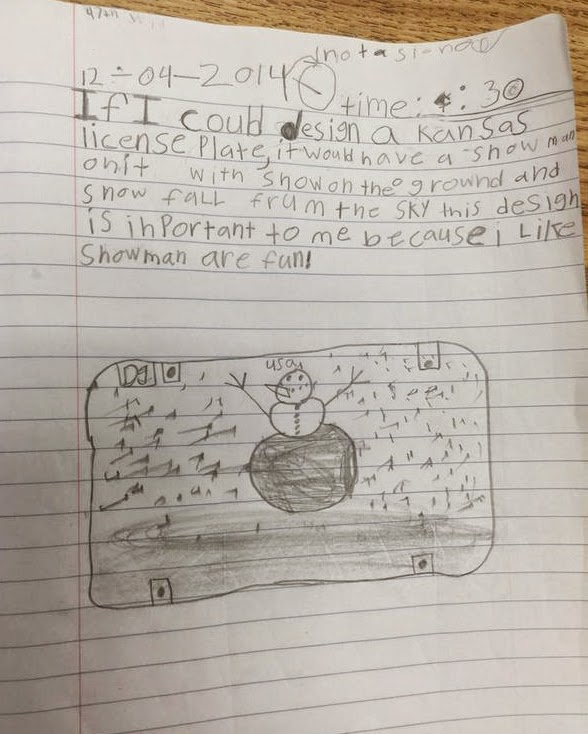 47th
not a signal
12÷04-2014 time: 4:30
If I could design a Kansas
license plate, it would have a snow man
on it with snow on the ground and
snow fall frum the sky this design
is inportant to me because i Like
Snowman are fun!
usa
DJ